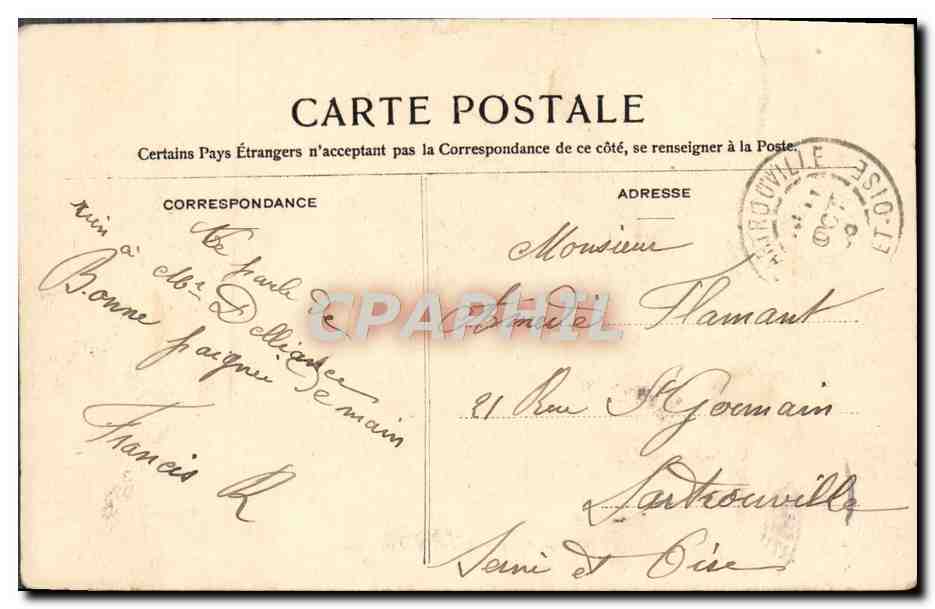 CARTE POSTALE
Certains Pays Étrangers n'acceptant pas la Correspondance de ce côté, se renseigner à la Poste.
CORRESPONDANCE
Ne parle de
rien à Mr Delliance
Bonne poignée de main
Francis R
ADRESSE
Monsieur
Amédée Flamant
21 Rue St Germain
Sartrouville
Seine et Oise
SARTROUVILLE
ET-OISE
CPAPHIL